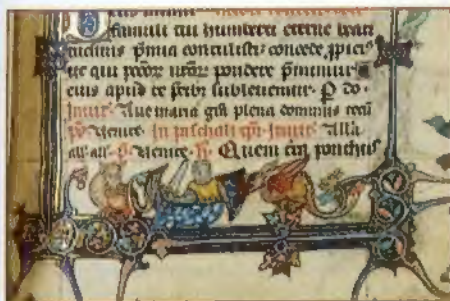 famuli tui humberti eterne beati
tudinis p̄mia contulisti: concede, ꝓpici⁹
ut qui pctōꝝ nr̄oꝝ pondere p̄mimur
eius apud te p̄cibꝫ subleuemur. P do
Inuit. Aue maria grā plena dominus tecū
p̄s Venite. In paschali tp̄r Inuit. Allā
all. all. p̄s Venite. H. Quem terra ponthus